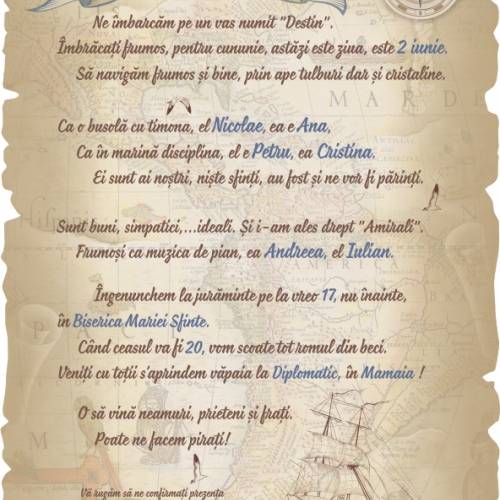 Ne îmbarcăm pe un vas numit "Destin".
Îmbrăcați frumos, pentru cununie, astăzi este ziua, este 2 iunie.
Să navigăm frumos și bine, prin ape tulburi dar și cristaline.
Ca o busolă cu timona, el Nicolae, ea e Ana,
Ca în marină disciplina, el e Petru, ea Cristina.
Ei sunt ai noștri, niște sfinti, au fost și ne vor fi părinți.
Sunt buni, simpatici,...ideali. Și i-am ales drept "Amirali".
Frumoși ca muzica de pian, ea Andreea, el Iulian.
Îngenunchem la jurăminte pe la vreo 17, nu înainte,
în Biserica Mariei Sfinte.
Când ceasul va fi 20, vom scoate tot romul din beci.
Veniți cu toții s'aprindem văpaia la Diplomatic, în Mamaia !
O să vină neamuri, prieteni și frați.
Poate ne facem pirați!
Vă rugăm să ne confirmați prezența